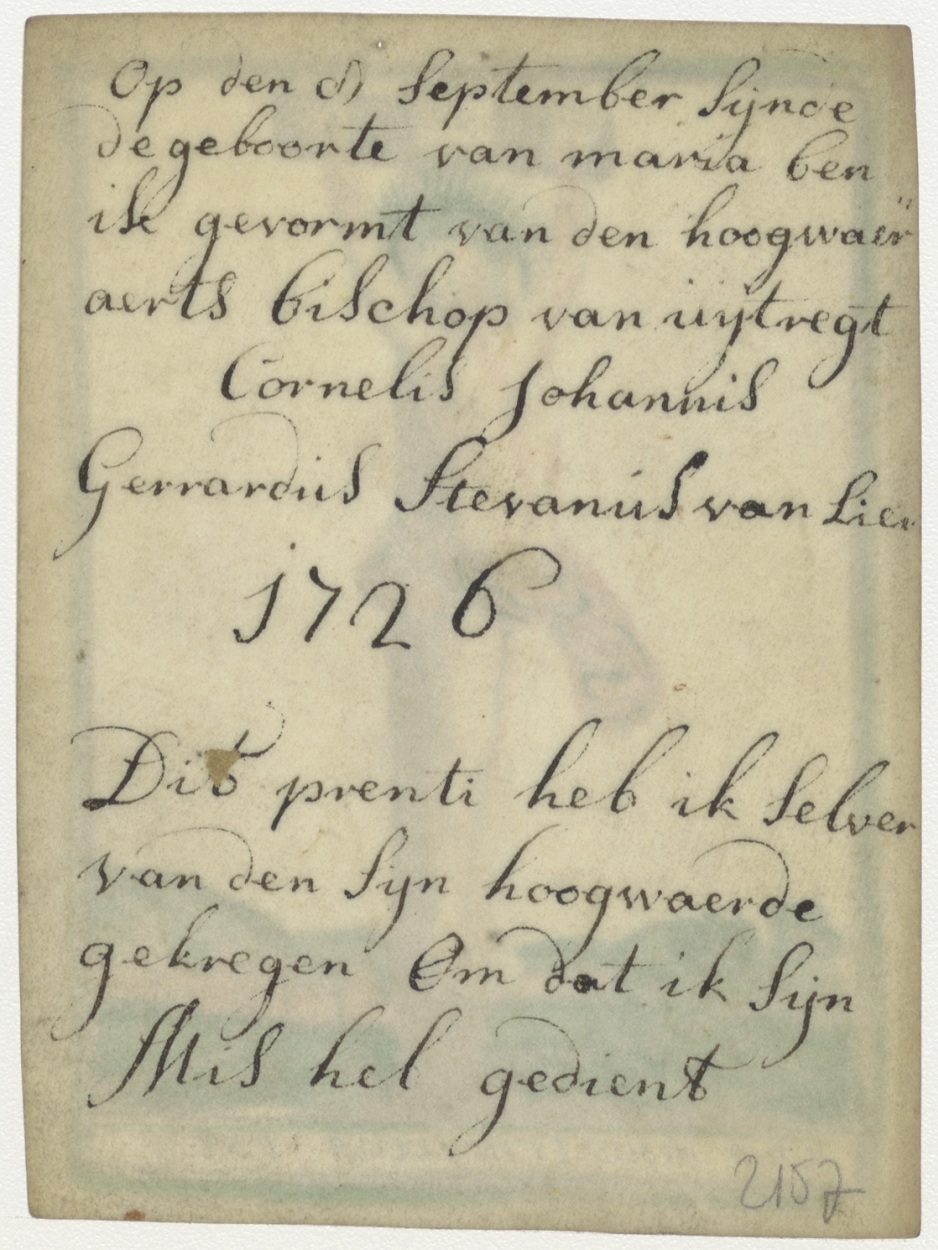 Op den 8 September Sijnde
de geboorte van maria ben
ik gevormt van den hoogwaer
aerts bisschop van uijtregt
Cornelis Johannis
Gerrardus Stevanus van Lier
1726
Dit prenti heb ik Selver
van den Sijn hoogwaerde
gekregen Om dat ik Sijn
Mis heb gedient
2157